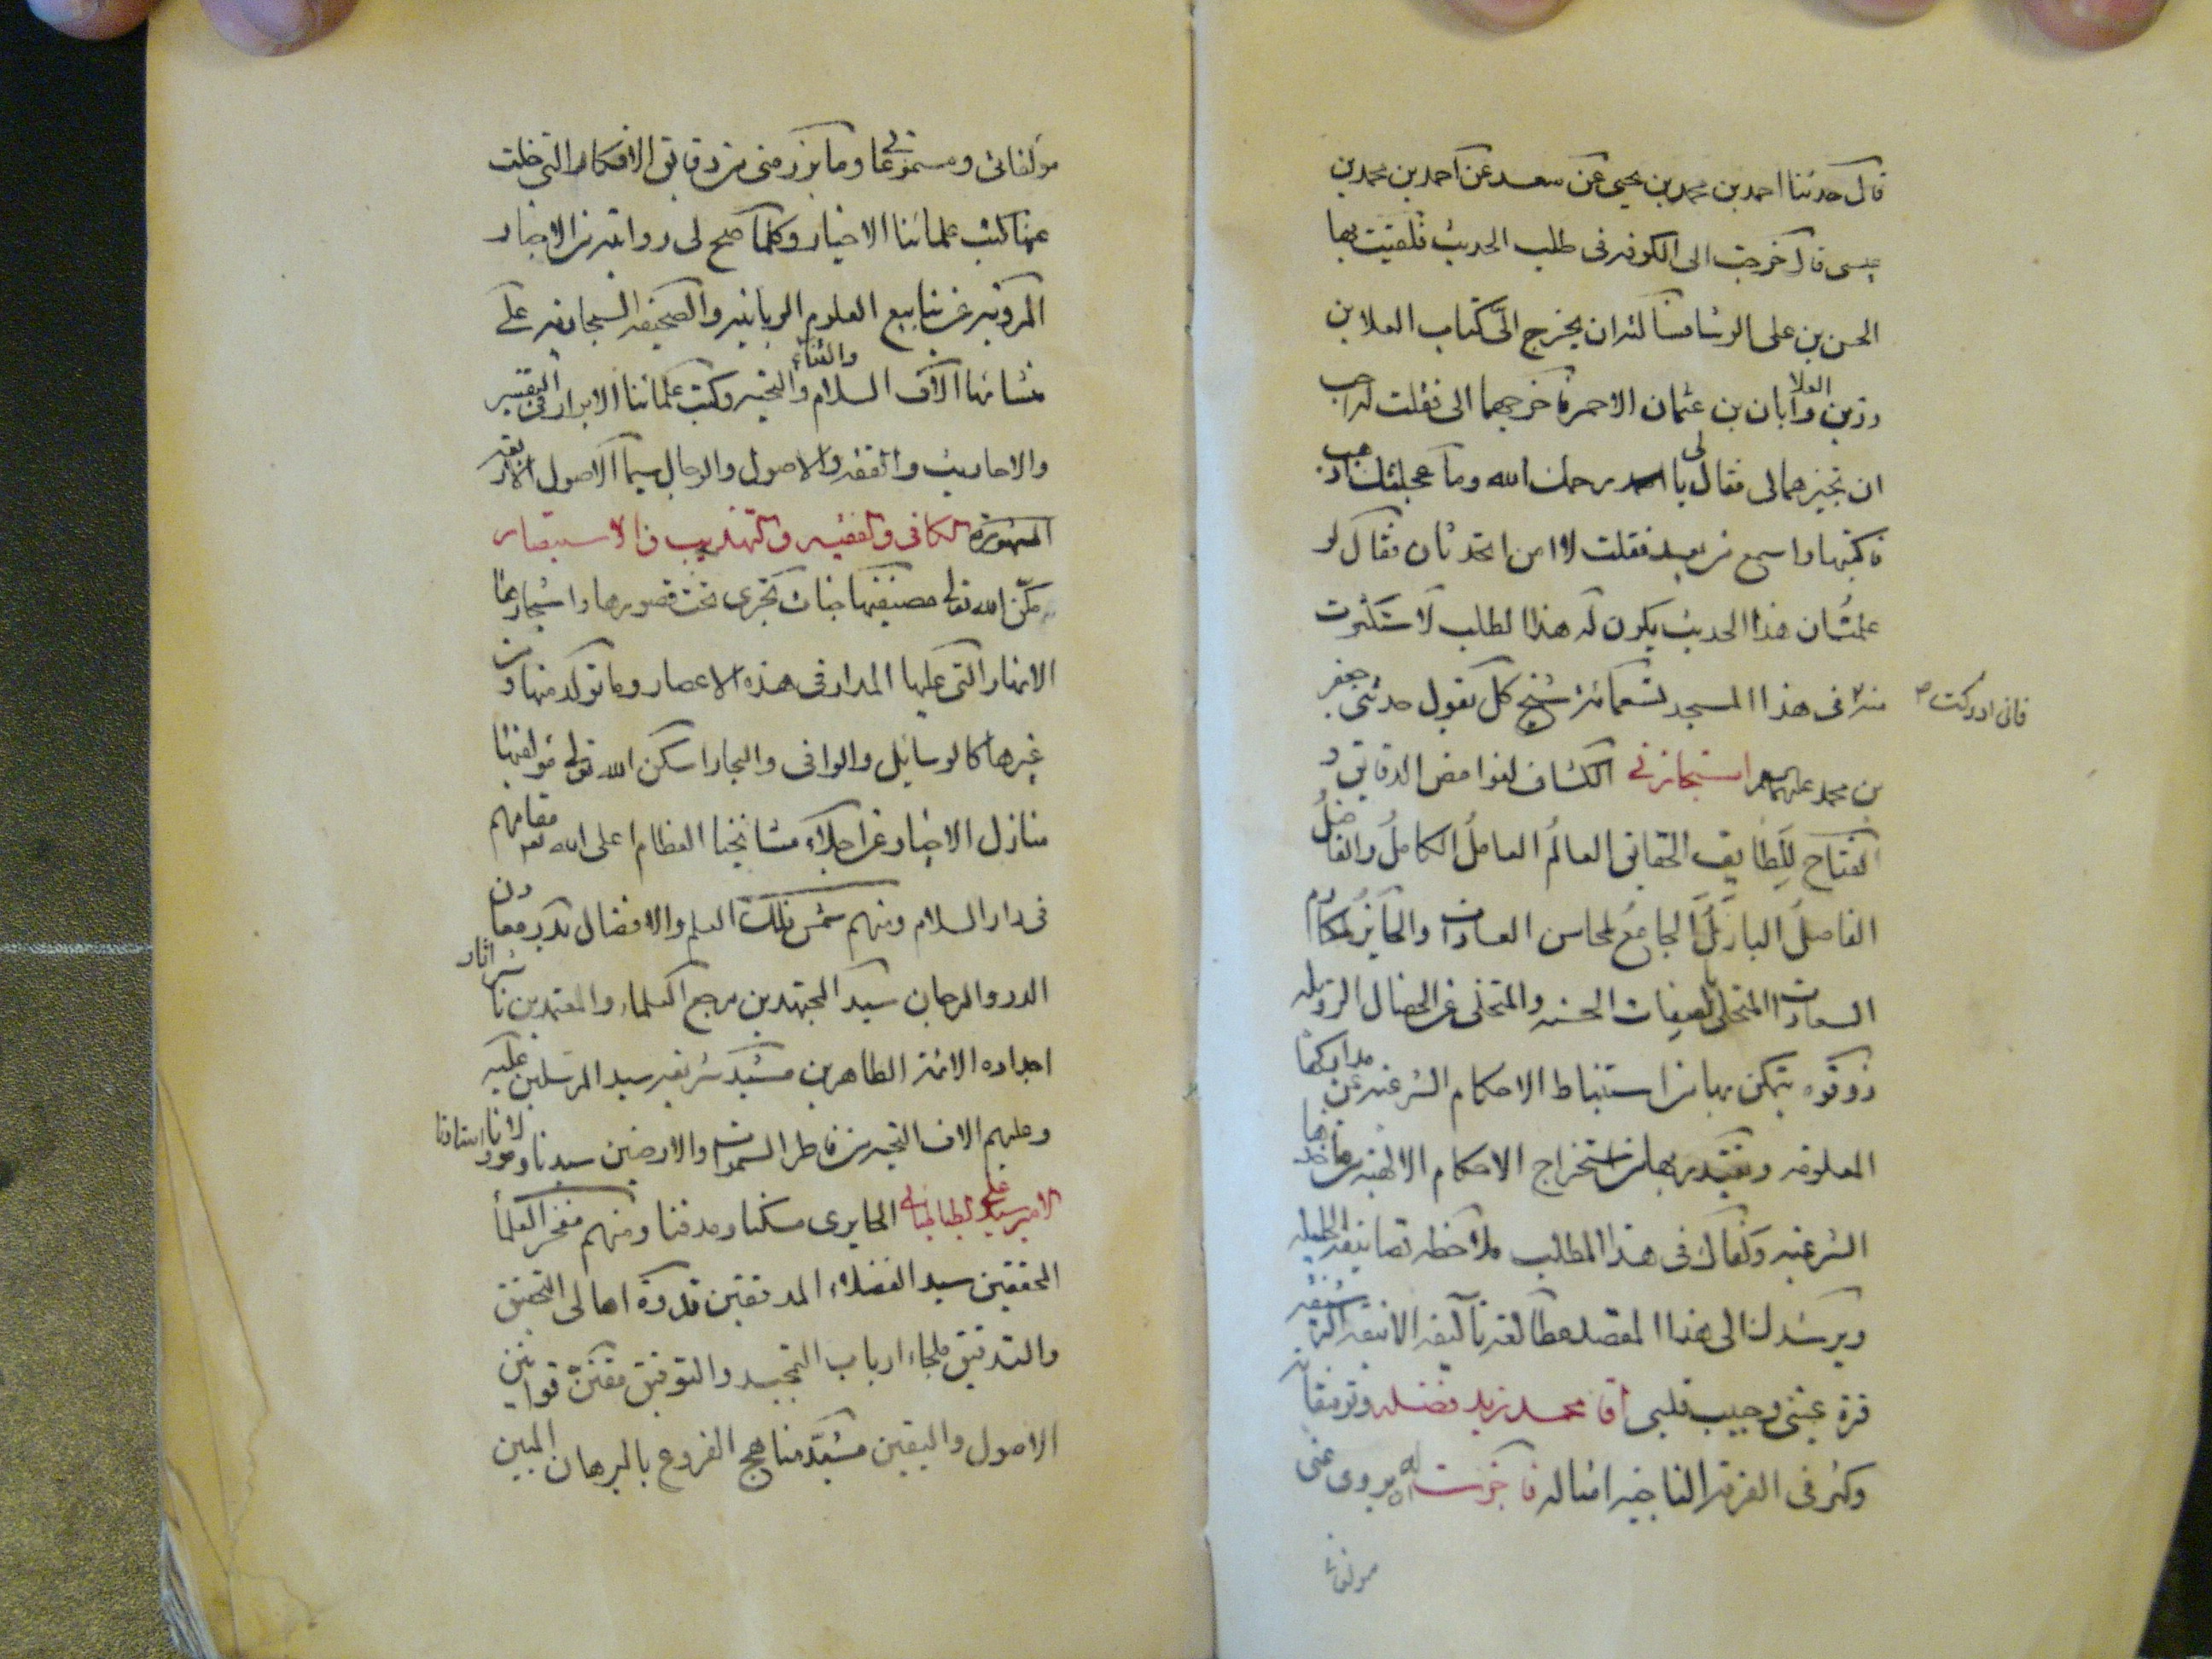 قال حدثنا احمد بن محمد بن يحيى عن سعد عن احمد بن محمد بن
عيسى قال خرجت الى الكوفه فى طلب الحديث فلقيت بها
الحسن بن على الوشا فسالته ان يخرج الىَّ كتاب العلا بن
رزين العلا وابان بن عثمان الاحمر فاخرجهما الى فقلت له احب
ان تجيزهما لى فقال لى يا رحمك الله وما عجلتك اذهب
فاكتبها واسمع من بعد فقلت لا امن الحدثان فقال لو
علمت ان هذا الحديث يكون له هذا الطلب لاستكثرت
منه فى هذا المسجد تسعمائه شيخ كل يقول حدثنى جعفر
فانى ادركت
بن محمد عليهما استجازنى الكشاف لغوامض الدقايق و
الفتاح للطايف الحقايق العالمُ العاملُ الكاملُ والفاضلُ
الفاصلُ الباذلُ الجامعُ لمحاسن العادات والحايزُ لمكارم
السعادات المتحلى بالصفات الحسنه والمتخلى عن الخصال الرذيله
ذو قوه يتمكن بها من استنباط الاحكام الشرعيه عن مداركها
المعلومه ويقتدر بها من استخراج الاحكام الالهيه من ماخذها
الشرعيه وكفاك فى هذا المطلب ملاحظه تصانيفه الجليله
ويرشدك الى هذا المقصد مطالعه تآليفه الانيقه الرشيقه
قرة عينى وحبيب قلبى اقا محمد زيد فضله وتوفيقاته
وكثر فى الفرقه الناجيه امثاله فاجزت له ان يروى عنى
مولفاتى
مولفاتى ومسموعاتى وما برز منى من دقايق الافكار التى خلت
عنها كتب علمائنا الاخيار وكلما صح لى روايته من الاخبار
المرويه عن ينابيع العلوم الربانيه والصحيفه السجاديه على
منشائها آلاف السلام والثناء والتحيه وكتب علمائنا الابرار فى التفسير
والاحاديث والفقه والاصول والرجال سيما الاصول الاربعه
المشهورة الكافى والفقيه والتهذيب والاستبصار
مكّن الله تعالى مصنفيها جنات تجرى تحت قصورها واشجارها
الانهار التى عليها المدار فى هذه الاعصار وما تولد منها ومن
غيرها كالوسايل والوافى والبحار اسكن الله تعالى مولفيها
منازل الاخيار عن اجلاء مشائخنا العظام اعلى الله تعالى مقامهم
فى دار السلام ومنهم شمس فلك العلم والافضال بدر معادن
الدر والمرجان سيد المجتهدين مرجع العلماء والمعتمدين ناشر اثار
اجداده الائمه الطاهرين مشيد شريعه سيد المرسلين عليه
وعليهم الاف التحيه من فاطر السموات والارضين سيدنا ومولانا استادنا
الامير سيد على الطباطبائى الحايرى مسكنا ومدفنا ومنهم مفخر العلماء
المحققين سيد الفضلاء المدققين قدوة اهالى التحقيق
والتدقيق ملجاء ارباب والتوفيق مقنن قوانين
الاصول واليقين مشيّد مناهج الفروع بالبرهان المبين